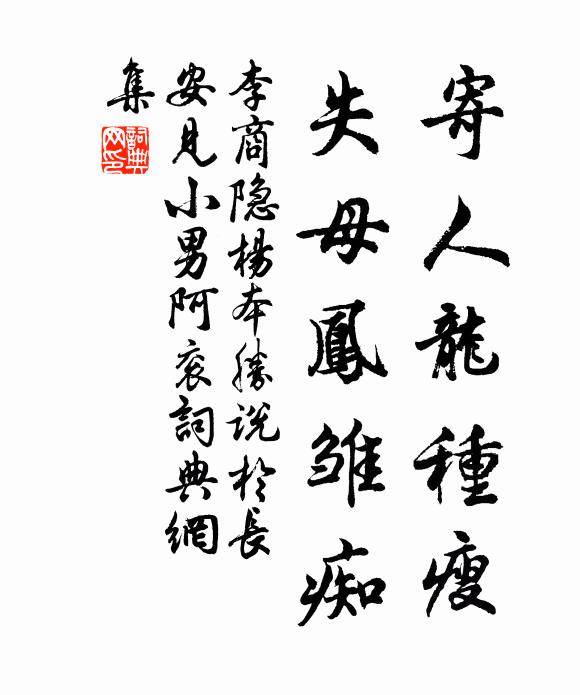 寄人龍種瘦
失母鳳雛痴
李商隐楊本勝說於長
安見小男阿衮詞典網
集
詞典网印